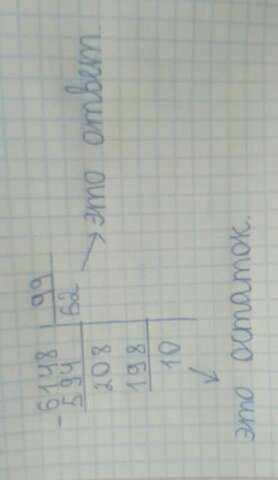 -6148 | 99
594 | 62 → это ответ.
208
198
10
это остаток.